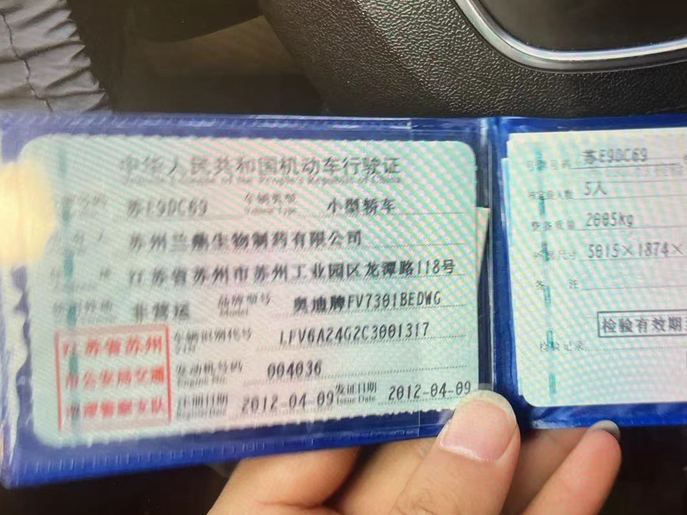 中华人民共和国机动车行驶证
Vehicle License of the People's Republic of China
苏E9DC69 车辆类型 小型轿车
Vehicle Type
苏州兰鼎生物制药有限公司
江苏省苏州市苏州工业园区龙潭路118号
非营运 品牌型号 奥迪牌FV7301BEDWG
Model
车辆识别代号 LFV6A24G2C3001317
VIN
发动机号码 004036
Engine No.
注册日期 2012-04-09 发证日期 2012-04-09
Issue Date
江苏省苏州
市公安局交通
巡逻警察支队
号牌号码 苏E9DC69
5人
整备质量 2005kg
外廓尺寸 5015×1874×
备 注
检验有效期
检验记录